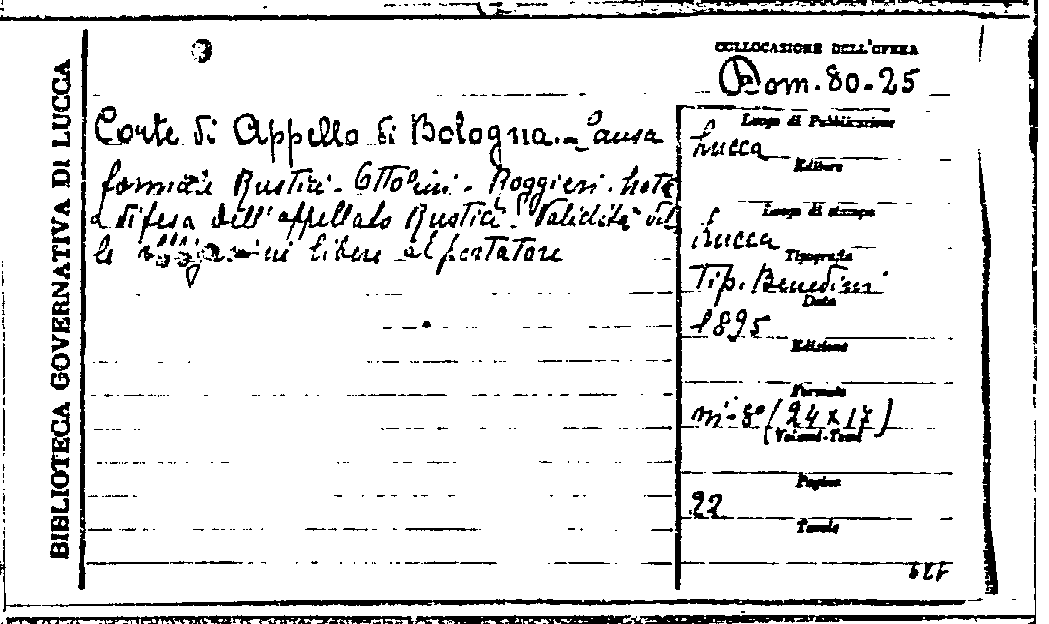 BIBLIOTECA GOVERNATIVA DI LUCCA
COLLOCAZIONE DELL'OPERA
Dom. 80-25
Corte di Appello di Bologna. - Causa
formale Rustici - Ottolini - Roggieri. Note
a difesa dell'appellato Rustici. Validità del
le obbligazioni libere al portatore
Luogo di Pubblicazione
Lucca
Editore
Luogo di stampa
Lucca
Tipografia
Tip. Benedini
Data
1895
Edizione
Formato
in-8° (24 x 17)
(Volumi-Tomi
Pagine
22
Tavole